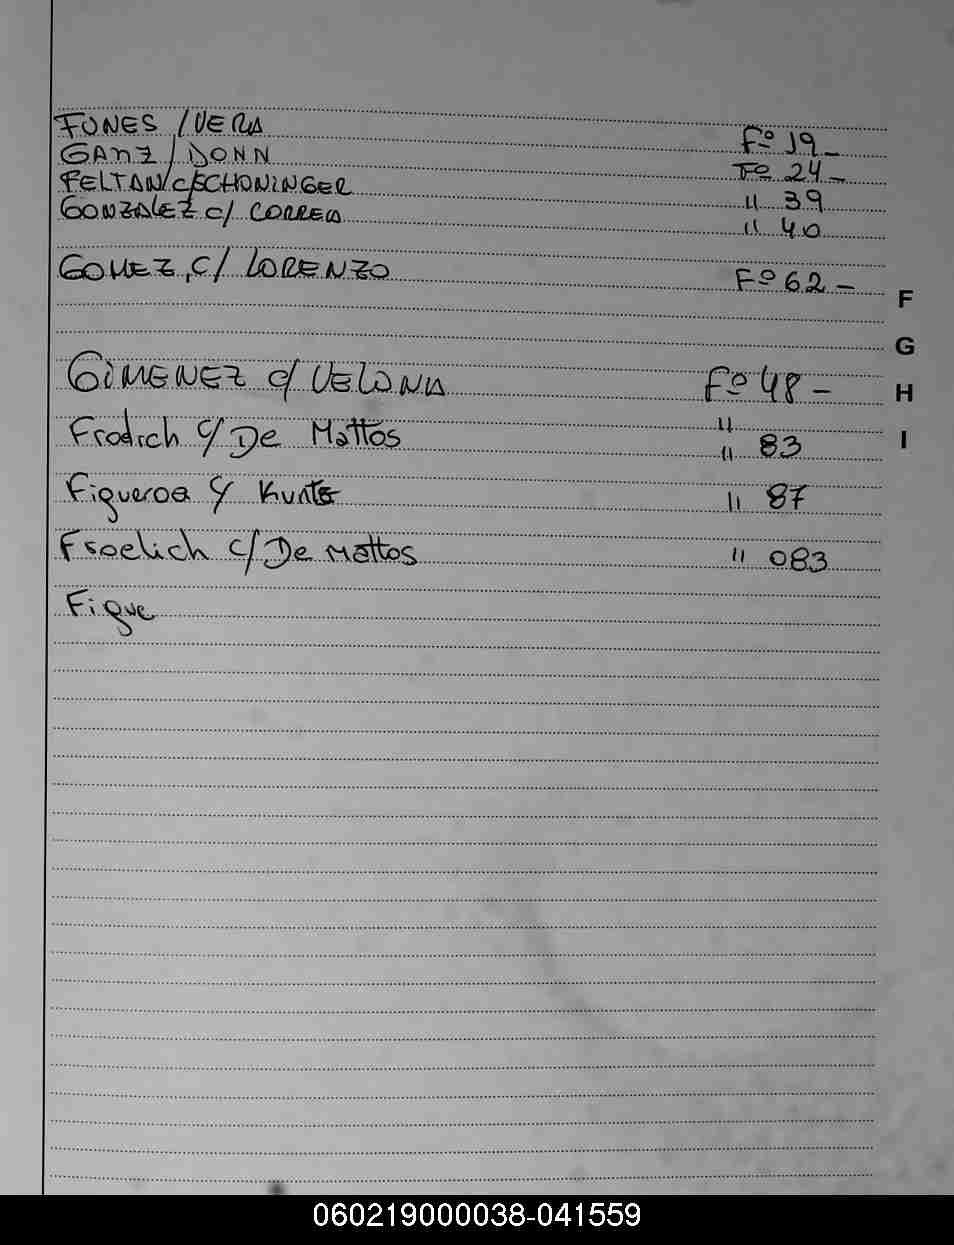 FUNES / VERA Fº 19 -
GANZ / DONN Fº 24 -
FELTAN c/ SCHONINGER " 39
GONZALEZ c/ CORREA " 40
GOMEZ, C/ LORENZO Fº 62 -
F
G
GIMENEZ c/ VELONA Fº 48 -
H
"
Frodich C/ De Mattos " 83
I
Figueroa C/ " 87
Froelich C/ De Mattos " 083
Figue
060219000038-041559